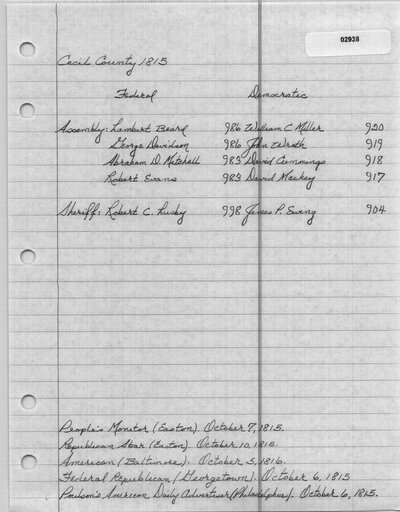 02938
Cecil County 1815
Federal Democratic
Assembly: Lambert Beard 986 William C. Miller 920
George Davidson 986 John Wroth 919
Abraham D. Mitchell 983 David Cummings 918
Robert Evans 983 David Mackey 917
Sheriff: Robert C. Lusby 998 James P. Ewing 904
People's Monitor (Easton). October 7, 1815.
Republican Star (Easton). October 10, 1815.
American (Baltimore). October 5, 1815.
Federal Republican (Georgetown). October 6, 1815
Poulson's American Daily Advertiser (Philadelphia). October 6, 1815.